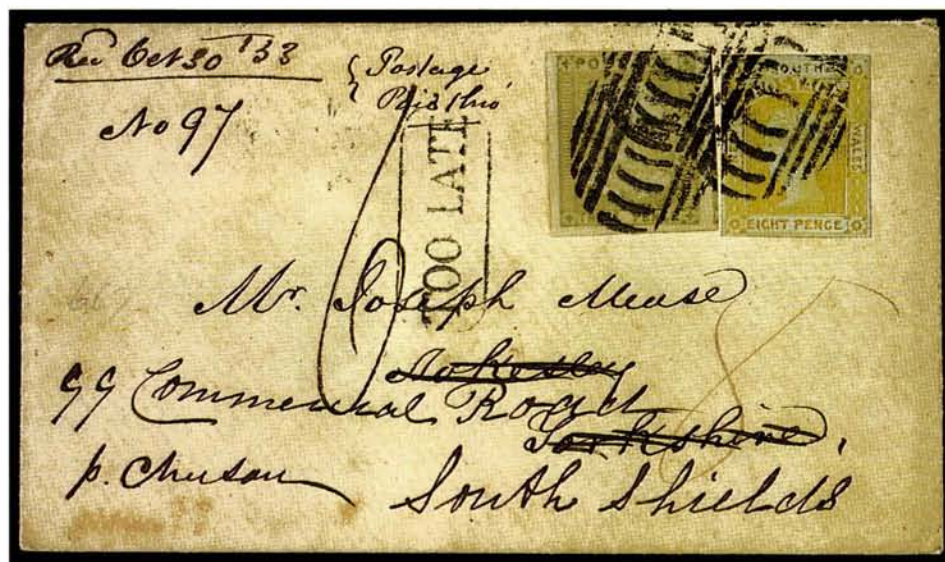 Rec Oct 30 '53
No 97
Postage
Paid thro'
TOO LATE
PO
SOUTH
WALES
EIGHT PENCE
6
8
Mr. Joseph Mease
Stokesley
99 Commercial Road
Yorkshire,
p. Chusan
South Shields